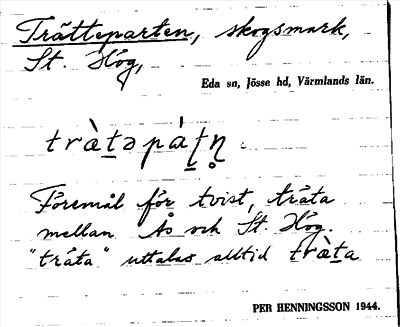 Trätteparten, skogsmark,
St. Hög,
Eda sn, Jösse hd, Värmlands län.
tràt̲əpáʈ̲n̥
Föremål för tvist, träta
mellan Ås och St. Hög.
"träta" uttalas alltid tràt̲a
PER HENNINGSSON 1944.